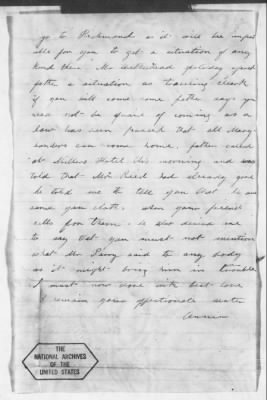 go to Richmond as it will be impos
ible for you to get a situation of any
kind there Mr yesterday offered
father a situation as traveling clerk
if you will come home father says you
need not be afraid of coming as a
law has been passed that all Mary-
landers can come home. father called
at Hotel this morning and was
told that Mr Reed had already gone
he told me to tell you that he has
some gray cloth. when your present
for them. he also desired me
to say that you must not mention
what Mr said to any body
as it might bring him in trouble
I must now close with best love
I remain your affectionate sister
Annie
THE
NATIONAL ARCHIVES
OF THE
UNITED STATES